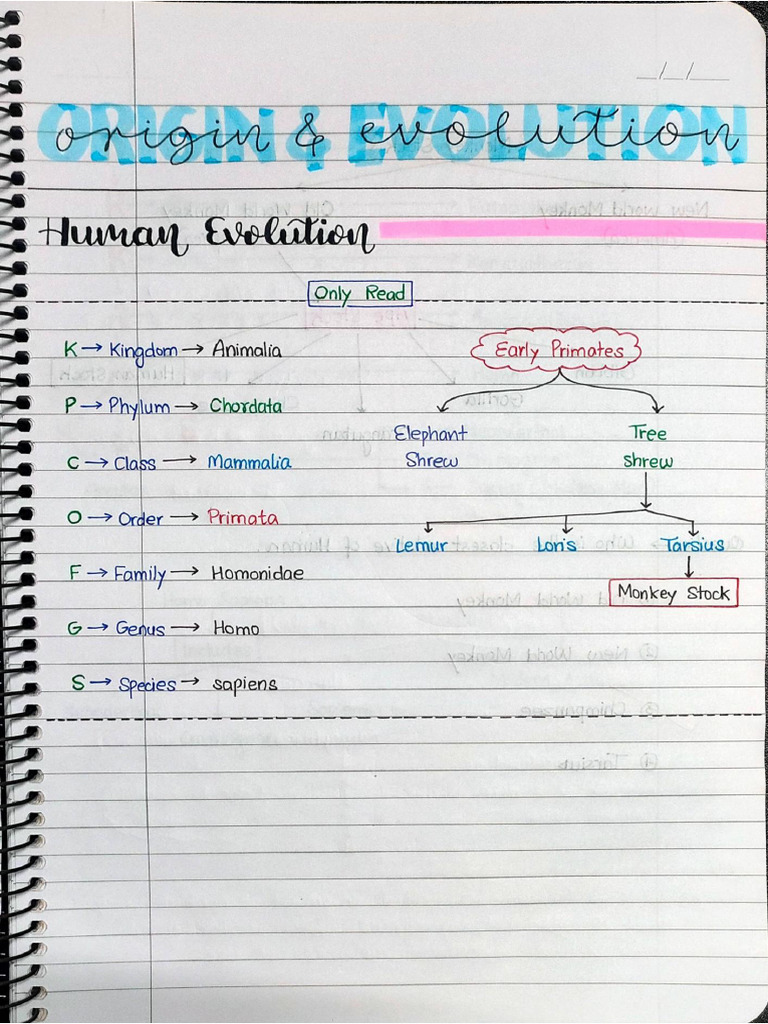 ORIGIN & EVOLUTION
origin & evolution
Human Evolution
Only Read
K → Kingdom → Animalia
P → Phylum → Chordata
C → Class → Mammalia
O → Order → Primata
F → Family → Homonidae
G → Genus → Homo
S → Species → sapiens
Early Primates
Elephant Shrew
Tree Shrew
Lemur Loris Tarsius
Monkey Stock